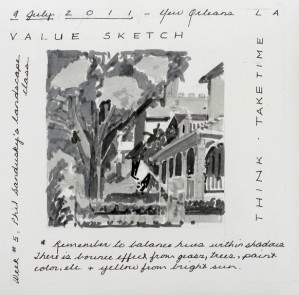 9 July 2011 - New Orleans LA
VALUE SKETCH
THINK · TAKE TIME
Week # 5, Phil Sandusky's Landscape
Class
* Remember to balance hues within shadows
There is bounce effect from grass, trees, paint
color, etc + yellow from bright sun.